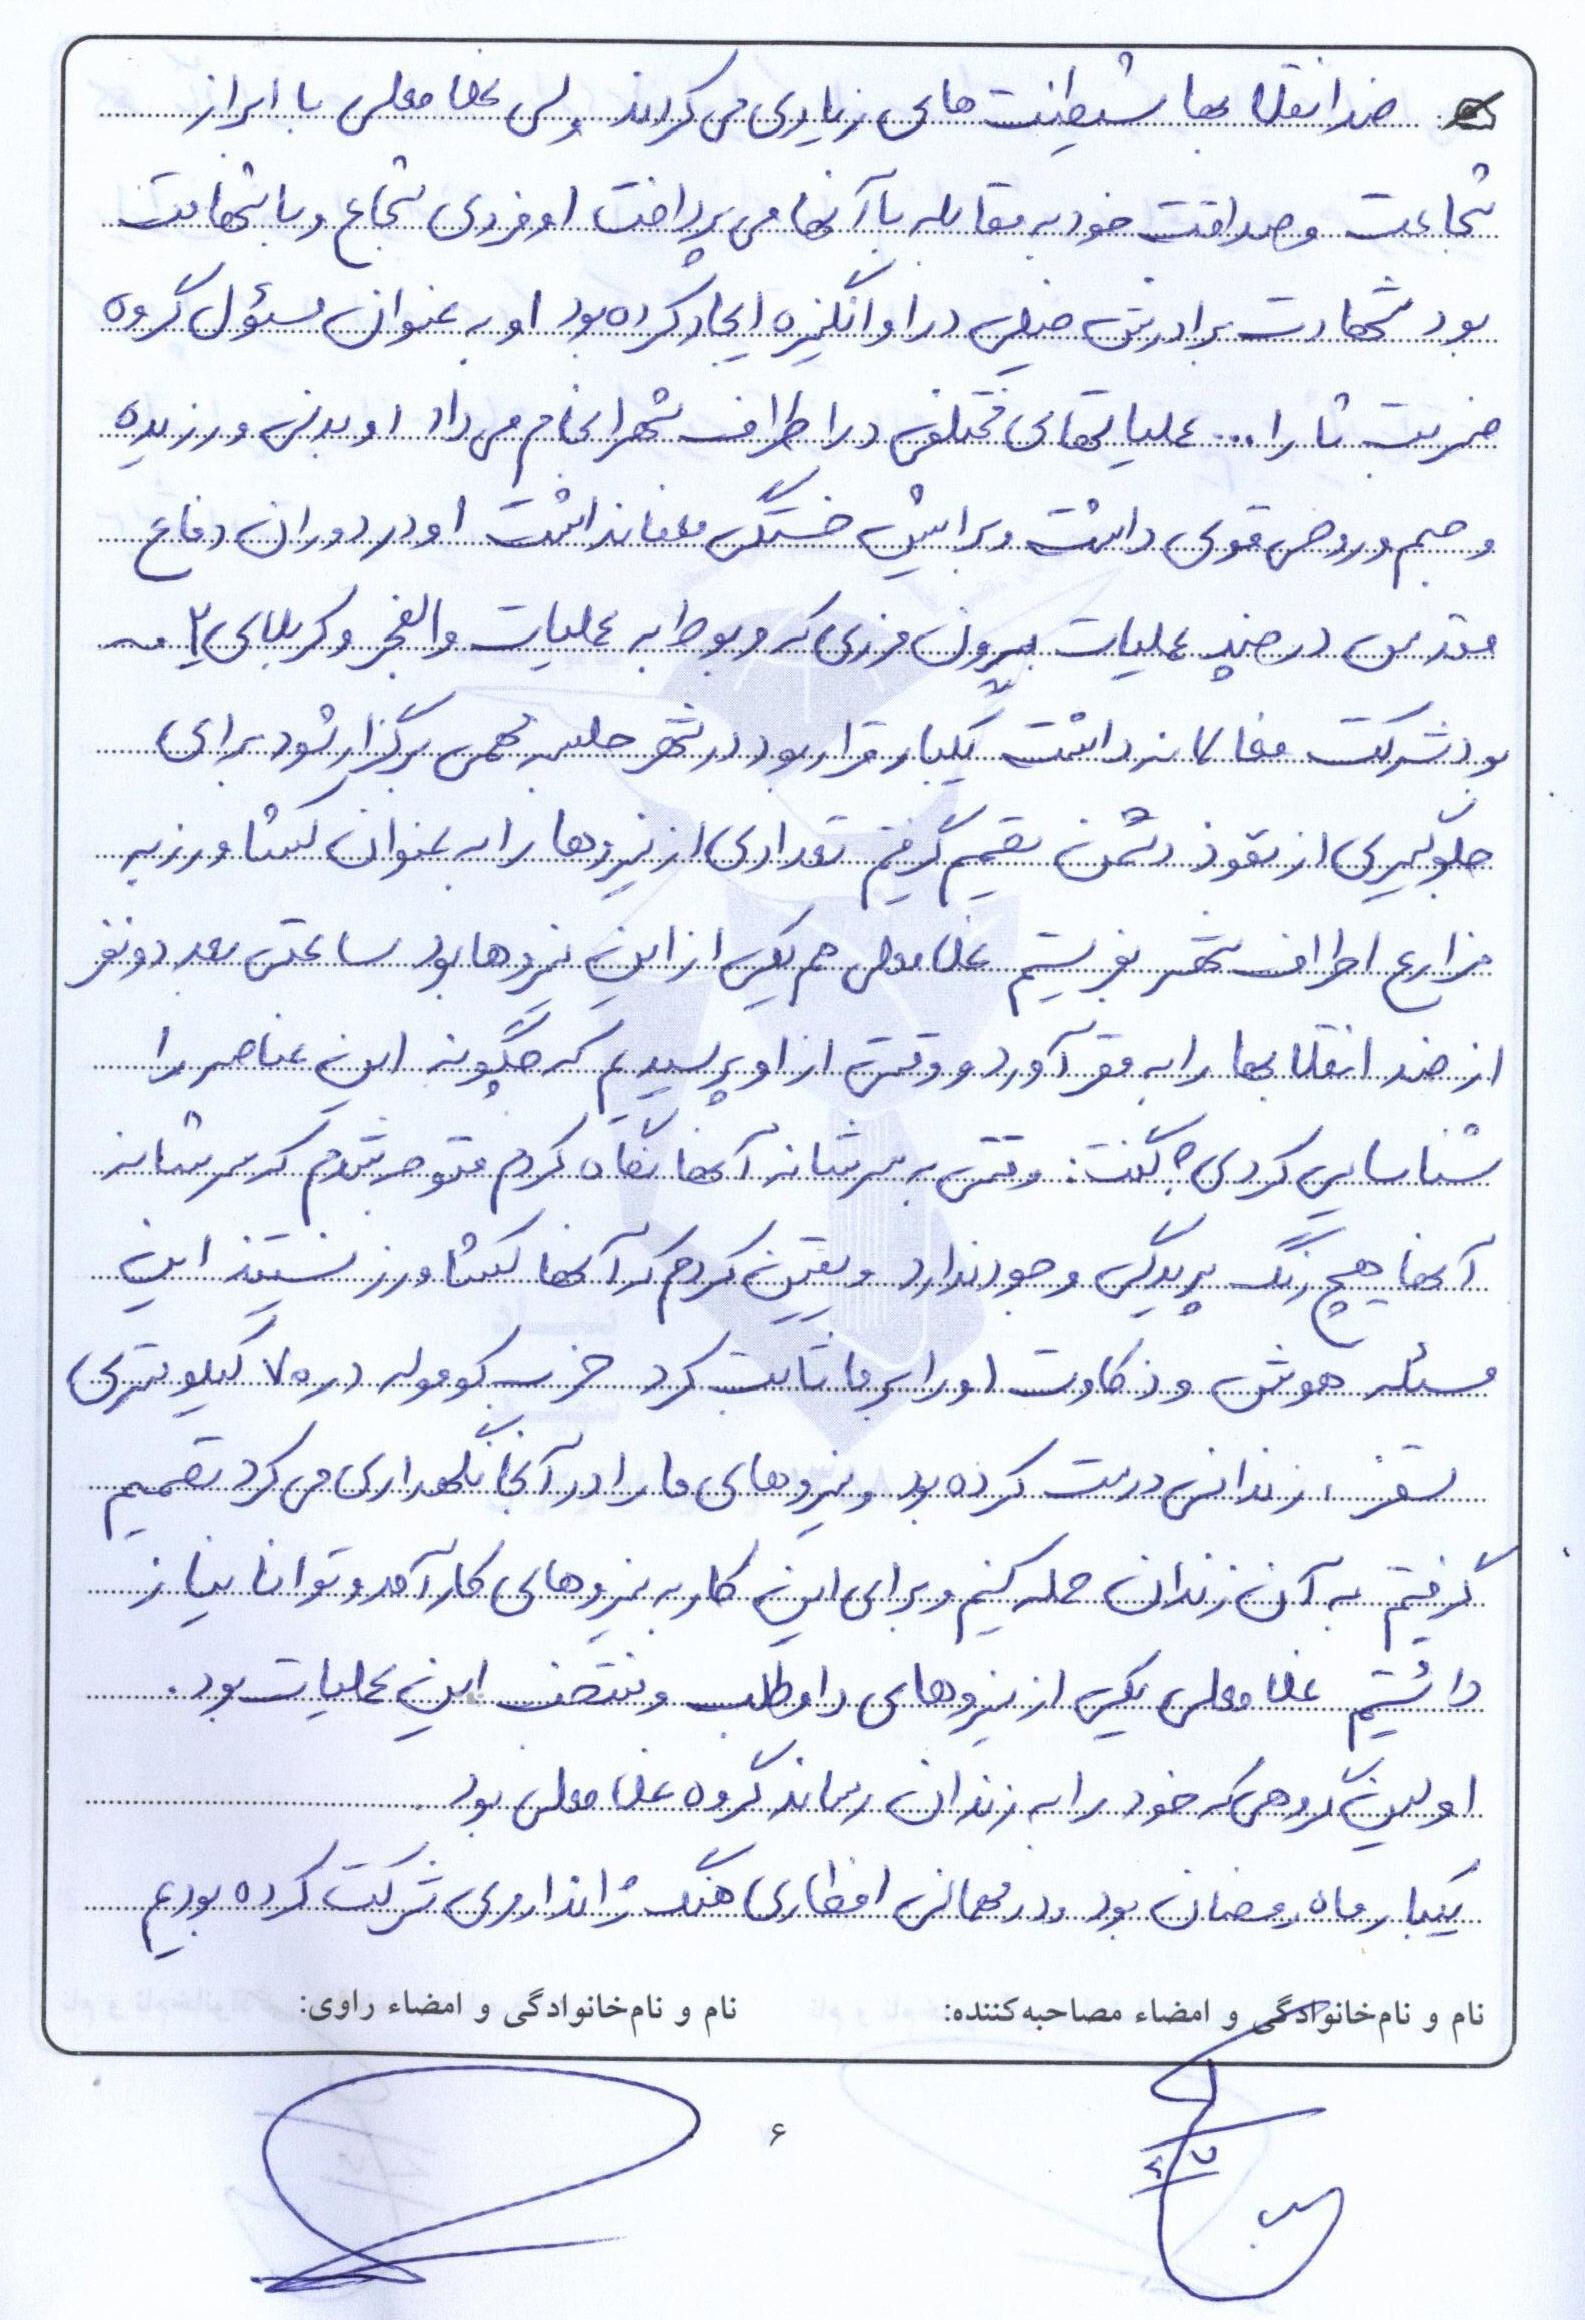 ضد انقلابها شیطنت های زیادی می کردند ولی غلامعلی با ابراز
شجاعت و صداقت خود به مقابله با آنها می پرداخت او فردی شجاع و با شهامت
بود شهادت برادرش خیلی در او انگیزه ایجاد کرده بود او به عنوان مسئول گروه
ضربت ثارا... عملیاتهای مختلفی در اطراف شهر انجام می داد او بدنی ورزیده
و جسم و روحی قوی داشت و برایش خستگی معنا نداشت او در دوران دفاع
مقدس در چند عملیات بیرون مرزی که مربوط به عملیات والفجر و کربلای ۲ می
بود شرکت فعالانه داشت یکبار قرار بود در شهر جلسه مهمی برگزار شود برای
جلوگیری از نفوذ دشمن تصمیم گرفتیم تعدادی از نیروها را به عنوان کشاورز به
مزارع اطراف شهر بفرستیم غلامعلی هم یکی از این نیروها بود ساعتی بعد دو نفر
از ضد انقلابها را به مقر آورد و وقتی از او پرسیدیم که چگونه این عناصر را
شناسایی کردی؟ گفت: وقتی به سرشانه آنها نگاه کردم متوجه شدم که سرشانه
آنها هیچ رنگ پریدگی وجود ندارد و یقین کردم که آنها کشاورز نیستند این
مسئله هوش و ذکاوت او را بر ما ثابت کرد حزب کومله در ۷۰ کیلومتری
سقز، زندانی درست کرده بود و نیروهای ما را در آنجا نگهداری می کرد تصمیم
گرفتیم به آن زندان حمله کنیم و برای این کار به نیروهای کارآمد و توانا نیاز
داشتیم غلامعلی یکی از نیروهای داوطلب و منتخب این عملیات بود.
اولین گروهی که خود را به زندان رساند گروه غلامعلی بود
یکبار ماه رمضان بود و در مهمانی افطاری هنگ ژاندارمری شرکت کرده بودیم
نام و نام‌خانوادگی و امضاء مصاحبه‌کننده: نام و نام‌خانوادگی و امضاء راوی:
۶